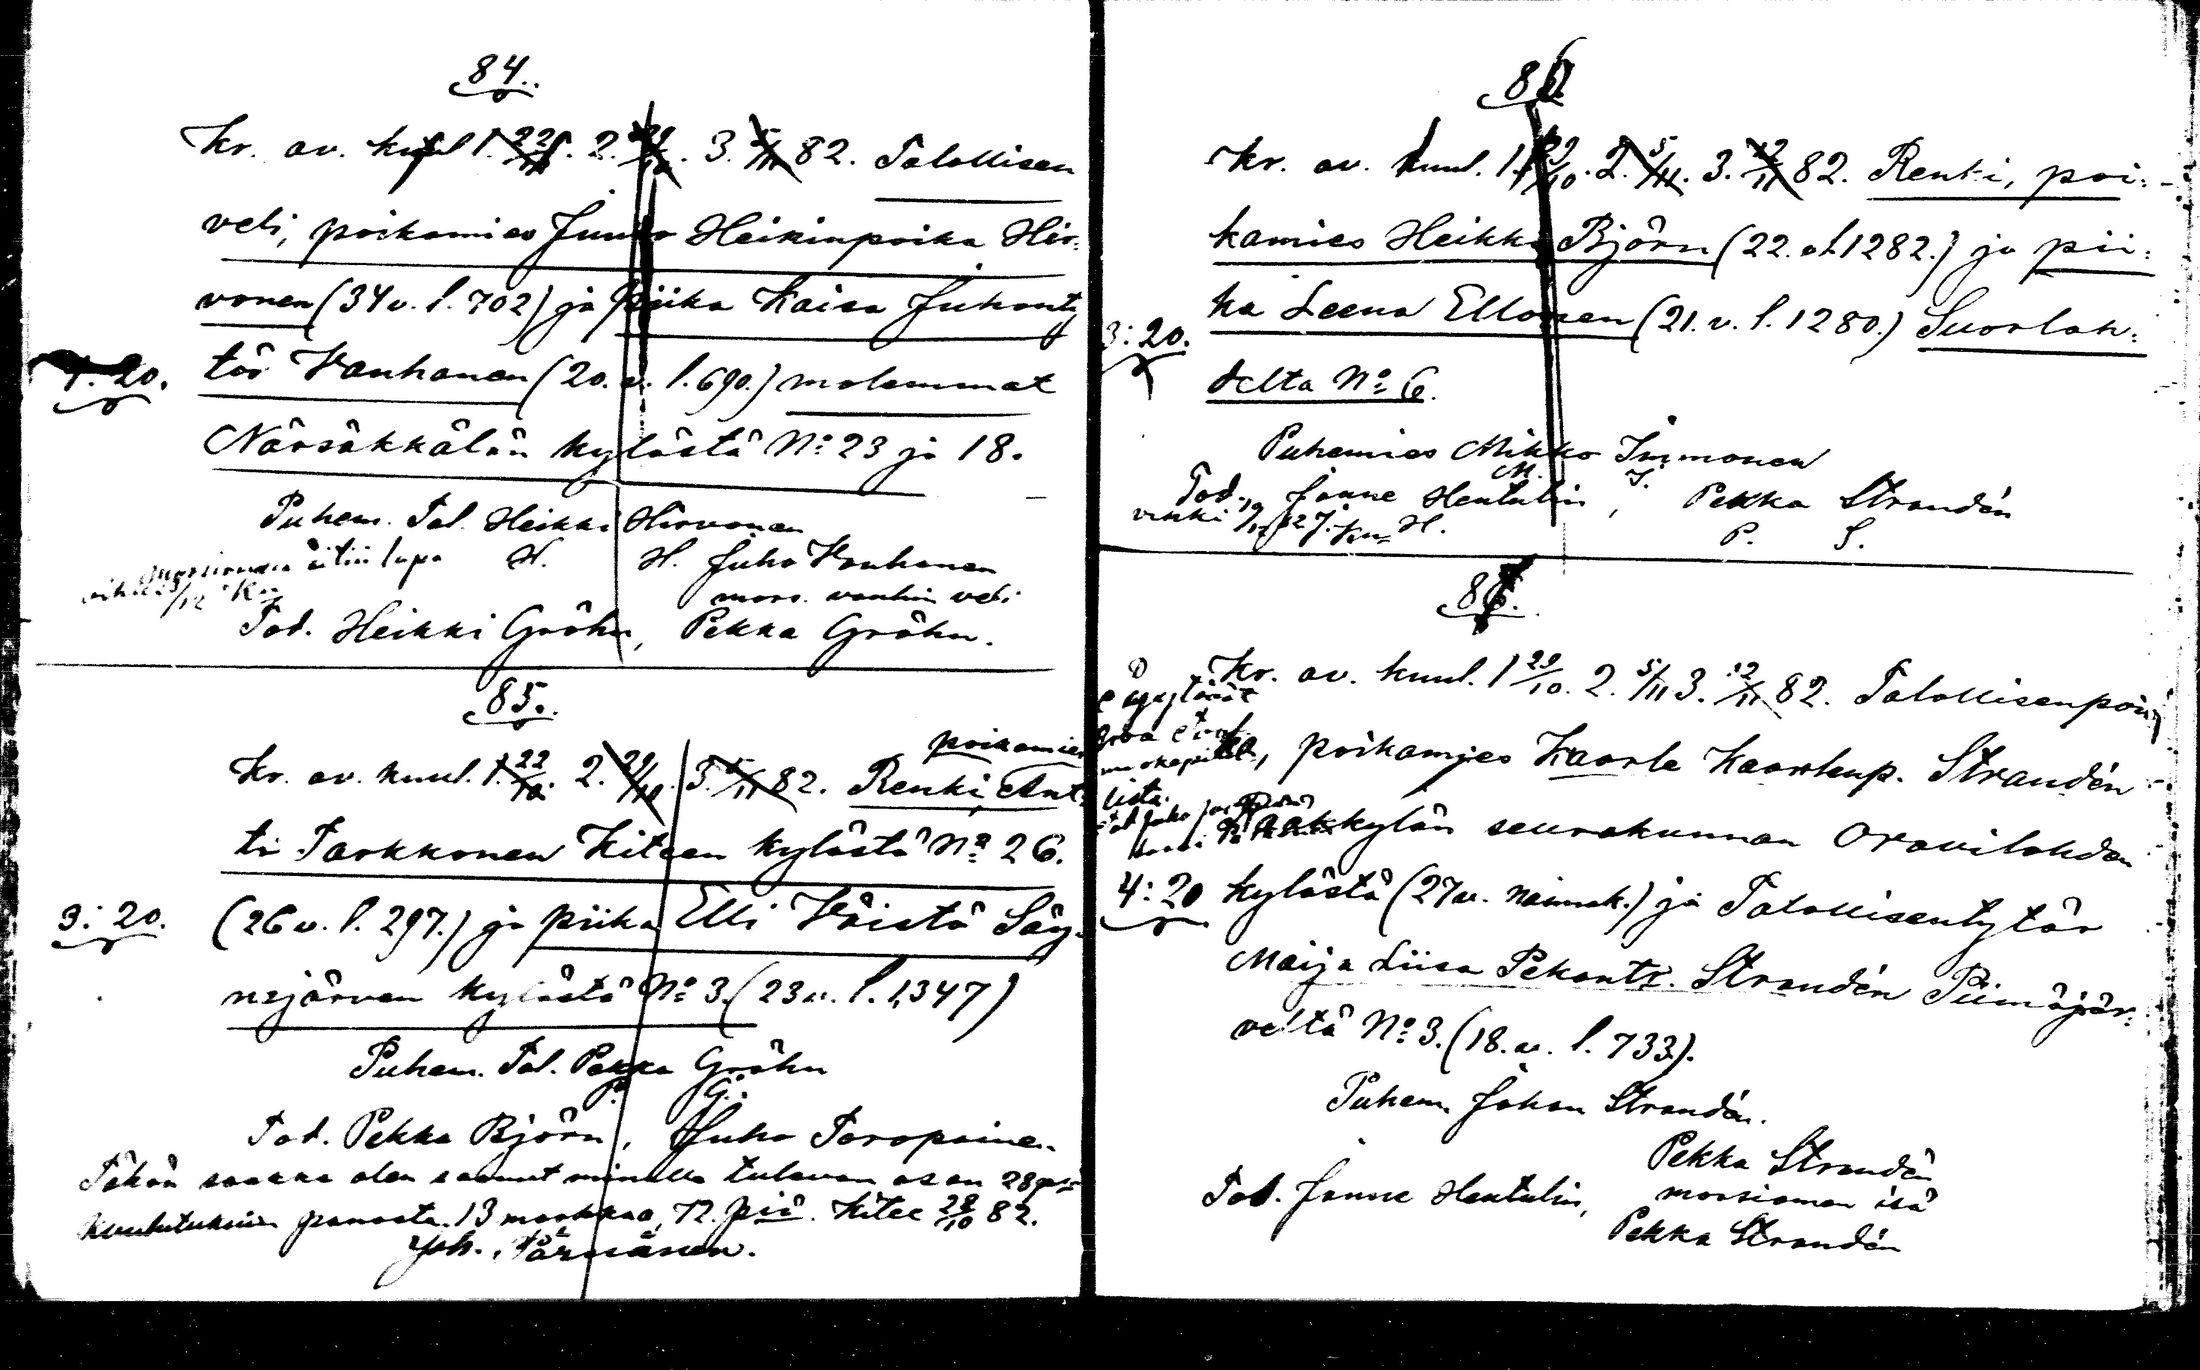 84.
Kr. av. kuul 1. 22/10. 2. 29/10. 3. 5/11 82. Talollisen
veli, poikamies Juho Heikinpoika Hir-
vonen (34 v. l. 702) ja piika Kaisa Juhonty
4:20. tär Vanhanen (20. v. l. 690.) molemmat
Närsäkkälän kylästä No 23 ja 18.
Puhem. Tal. Heikki Hirvonen
äitin lupa H. H. Juho Vanhanen
mors. vanhin veli
Tod. Heikki Gröhn, Pekka Gröhn.
85.
poikamies
Kr. av. kuul. 1. 22/10. 2. 29/10. 3. 5/11 82. Renki, Ant-
ti Tarkkonen Kiteen kylästä No 26.
3:20. (26 v. l. 297.) ja piika Elli Väistö Säy-
nejärven kylästä No 3. (23 v. l. 1,347)
Puhem. Tal. Pekka Gröhn
P. G.
Tod. Pekka Björn, Juho Toropainen.
Tähän saakka olen saanut minulle tulevan osan 28
kuulutuksien panosta. 13 markkaa, 72. piä. Kitee 28/10 82.
Joh. Pärnänen.
86
Kr. av. kuul. 1. 29/10. 2. 5/11. 3. 12/11 82. Renki, poi-
kamies Heikki Björn (22. v. l. 1282.) ja pii-
ka Leena Ellonen (21. v. l. 1280.) Suorlah-
3:20.
delta No 6.
Puhemies Mikko Immonen
M. I.
Tod. Janne Hentulin, Pekka Strandén
H. P. S.
Kr. av. kuul. 1 29/10. 2. 5/11 3. 12/11 82. Talollisenpoi-
ka, poikamies Kaarle Kaarlenp. Strandén
Pääkkylän seurakunnan Oravilahden
4:20 kylästä (27 v. naimat.) ja Talollisentytär
Maija Liisa Pekantr. Strandén Piimäjär-
veltä No 3. (18. v. l. 733).
Puhem. Johan Strandén.
Pekka Strandén
Tod. Janne Hentulin, morsiamen isä
Pekka Strandén